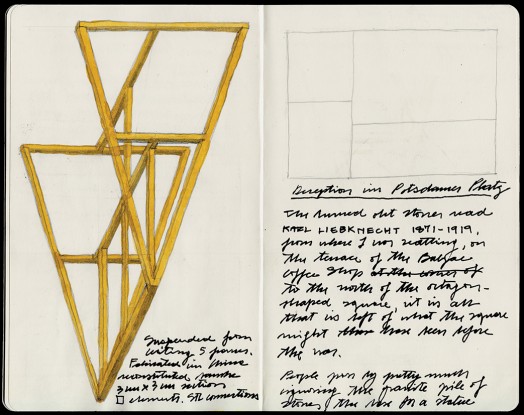 Suspended from
ceiling 5 frames.
Fabricated in China
reconstituted bamboo
3 cm x 3 cm section
elements. Stl connections
Deception in Potsdamer Platz
The turned out stones read
KARL LIEBKNECHT 1871-1919,
from where I was sitting, on
the terrace of the Balzac
coffee shop at the corner of
to the north of the octagon-
shaped square, it is all
that is left of what the square
might have been before
the war.
People pass by pretty much
ignoring the granite pile of
stones, the base for a statue